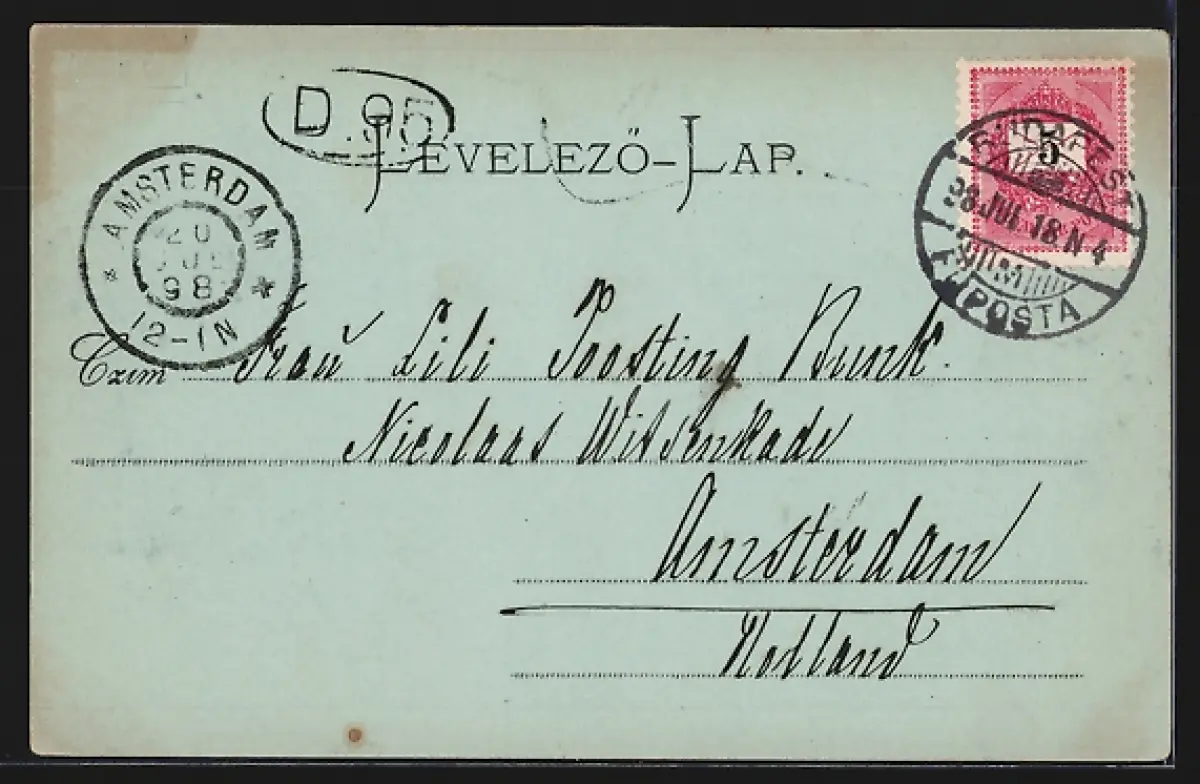 D.95
LEVELEZŐ-LAP.
5
BUDAPEST
98 JUL 18 N 4
M
FŐPOSTA
AMSTERDAM
20 JUL 98
12-1N
Czim Frau Lili Poosting Bunk.
Nicolaas Witsenkade
Amsterdam
Holland